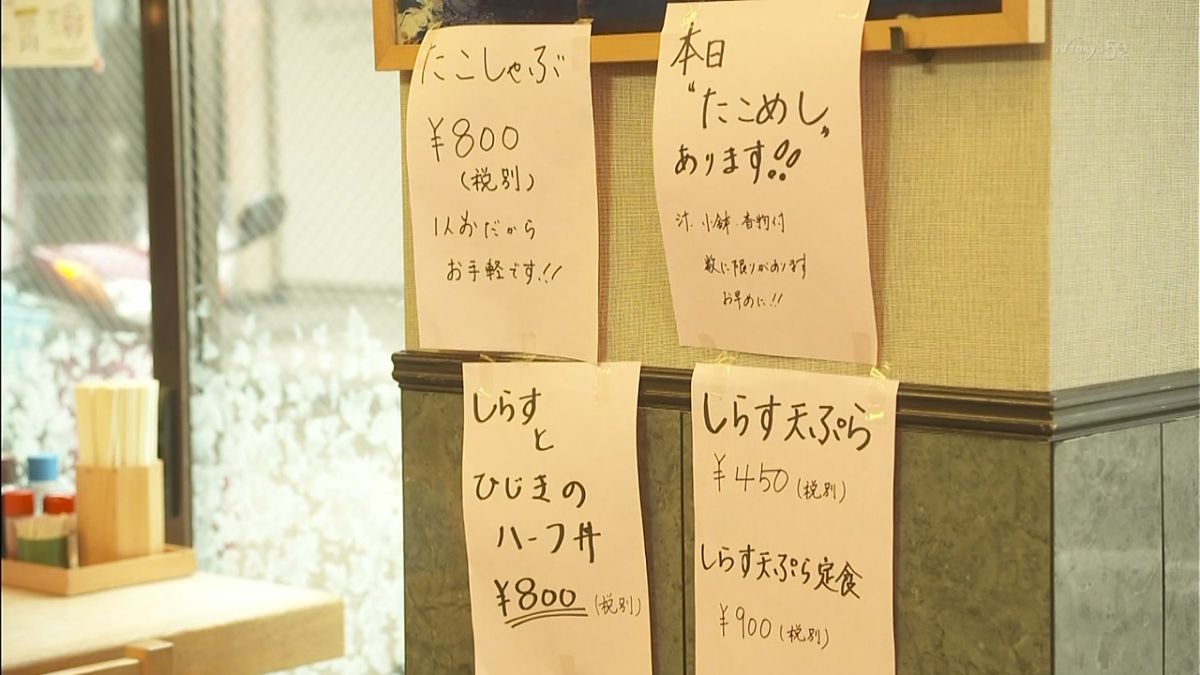 たこしゃぶ
¥800
(税別)
1人おだから
お手軽です!!
本日
"たこめし"
あります!!
汁、小鉢、香物付
数に限りがあります
お早めに!!
しらす
と
ひじきの
ハーフ丼
¥800 (税別)
しらす天ぷら
¥450 (税別)
しらす天ぷら定食
¥900 (税別)